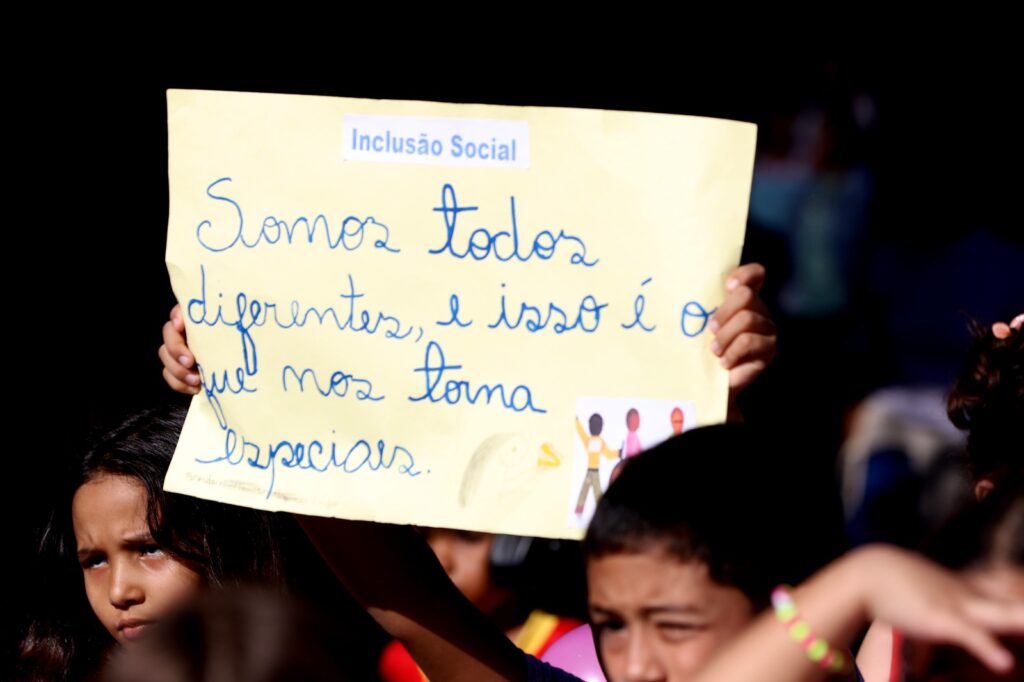 Inclusão Social
Somos todos
diferentes, e isso é o
que nos torna
especiais.